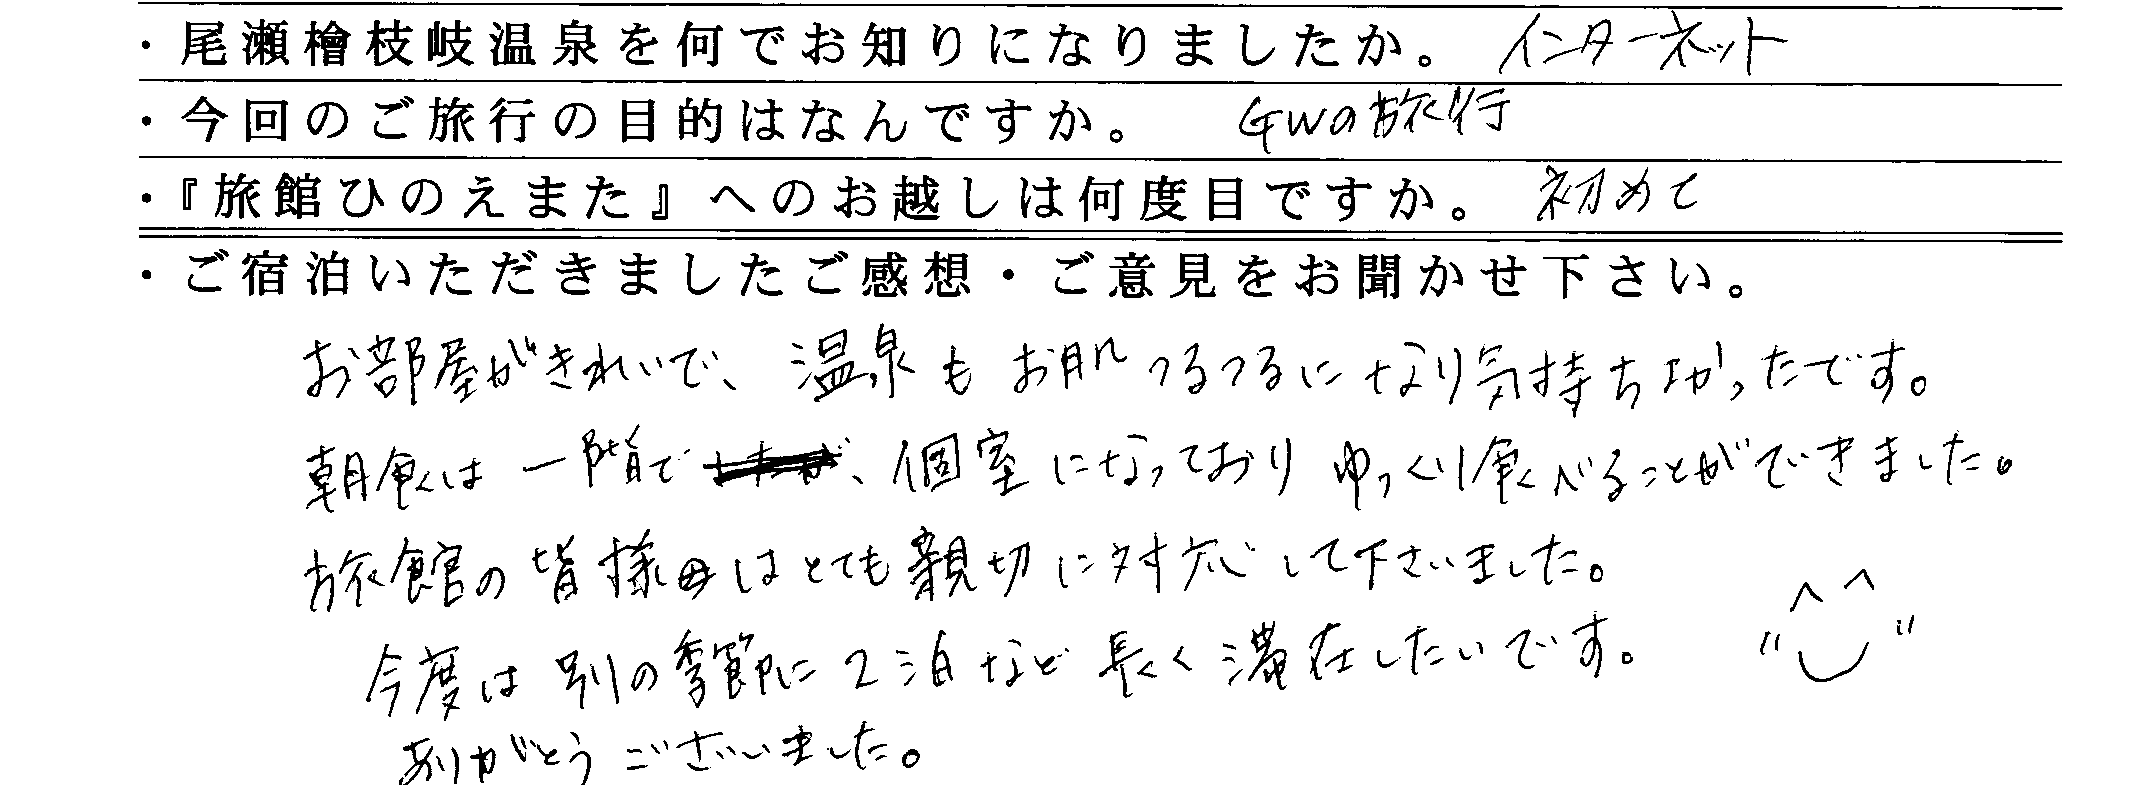 ・尾瀬檜枝岐温泉を何でお知りになりましたか。 インターネット
・今回のご旅行の目的はなんですか。 GWの旅行
・『旅館ひのえまた』へのお越しは何度目ですか。 初めて
・ご宿泊いただきましたご感想・ご意見をお聞かせ下さい。
お部屋がきれいで、温泉もお肌つるつるになり気持ちよかったです。
朝食は一階で、個室になっておりゆっくり食べることができました。
旅館の皆様はとても親切に対応して下さいました。
今度は別の季節に2泊など長く滞在したいです。
ありがとうございました。